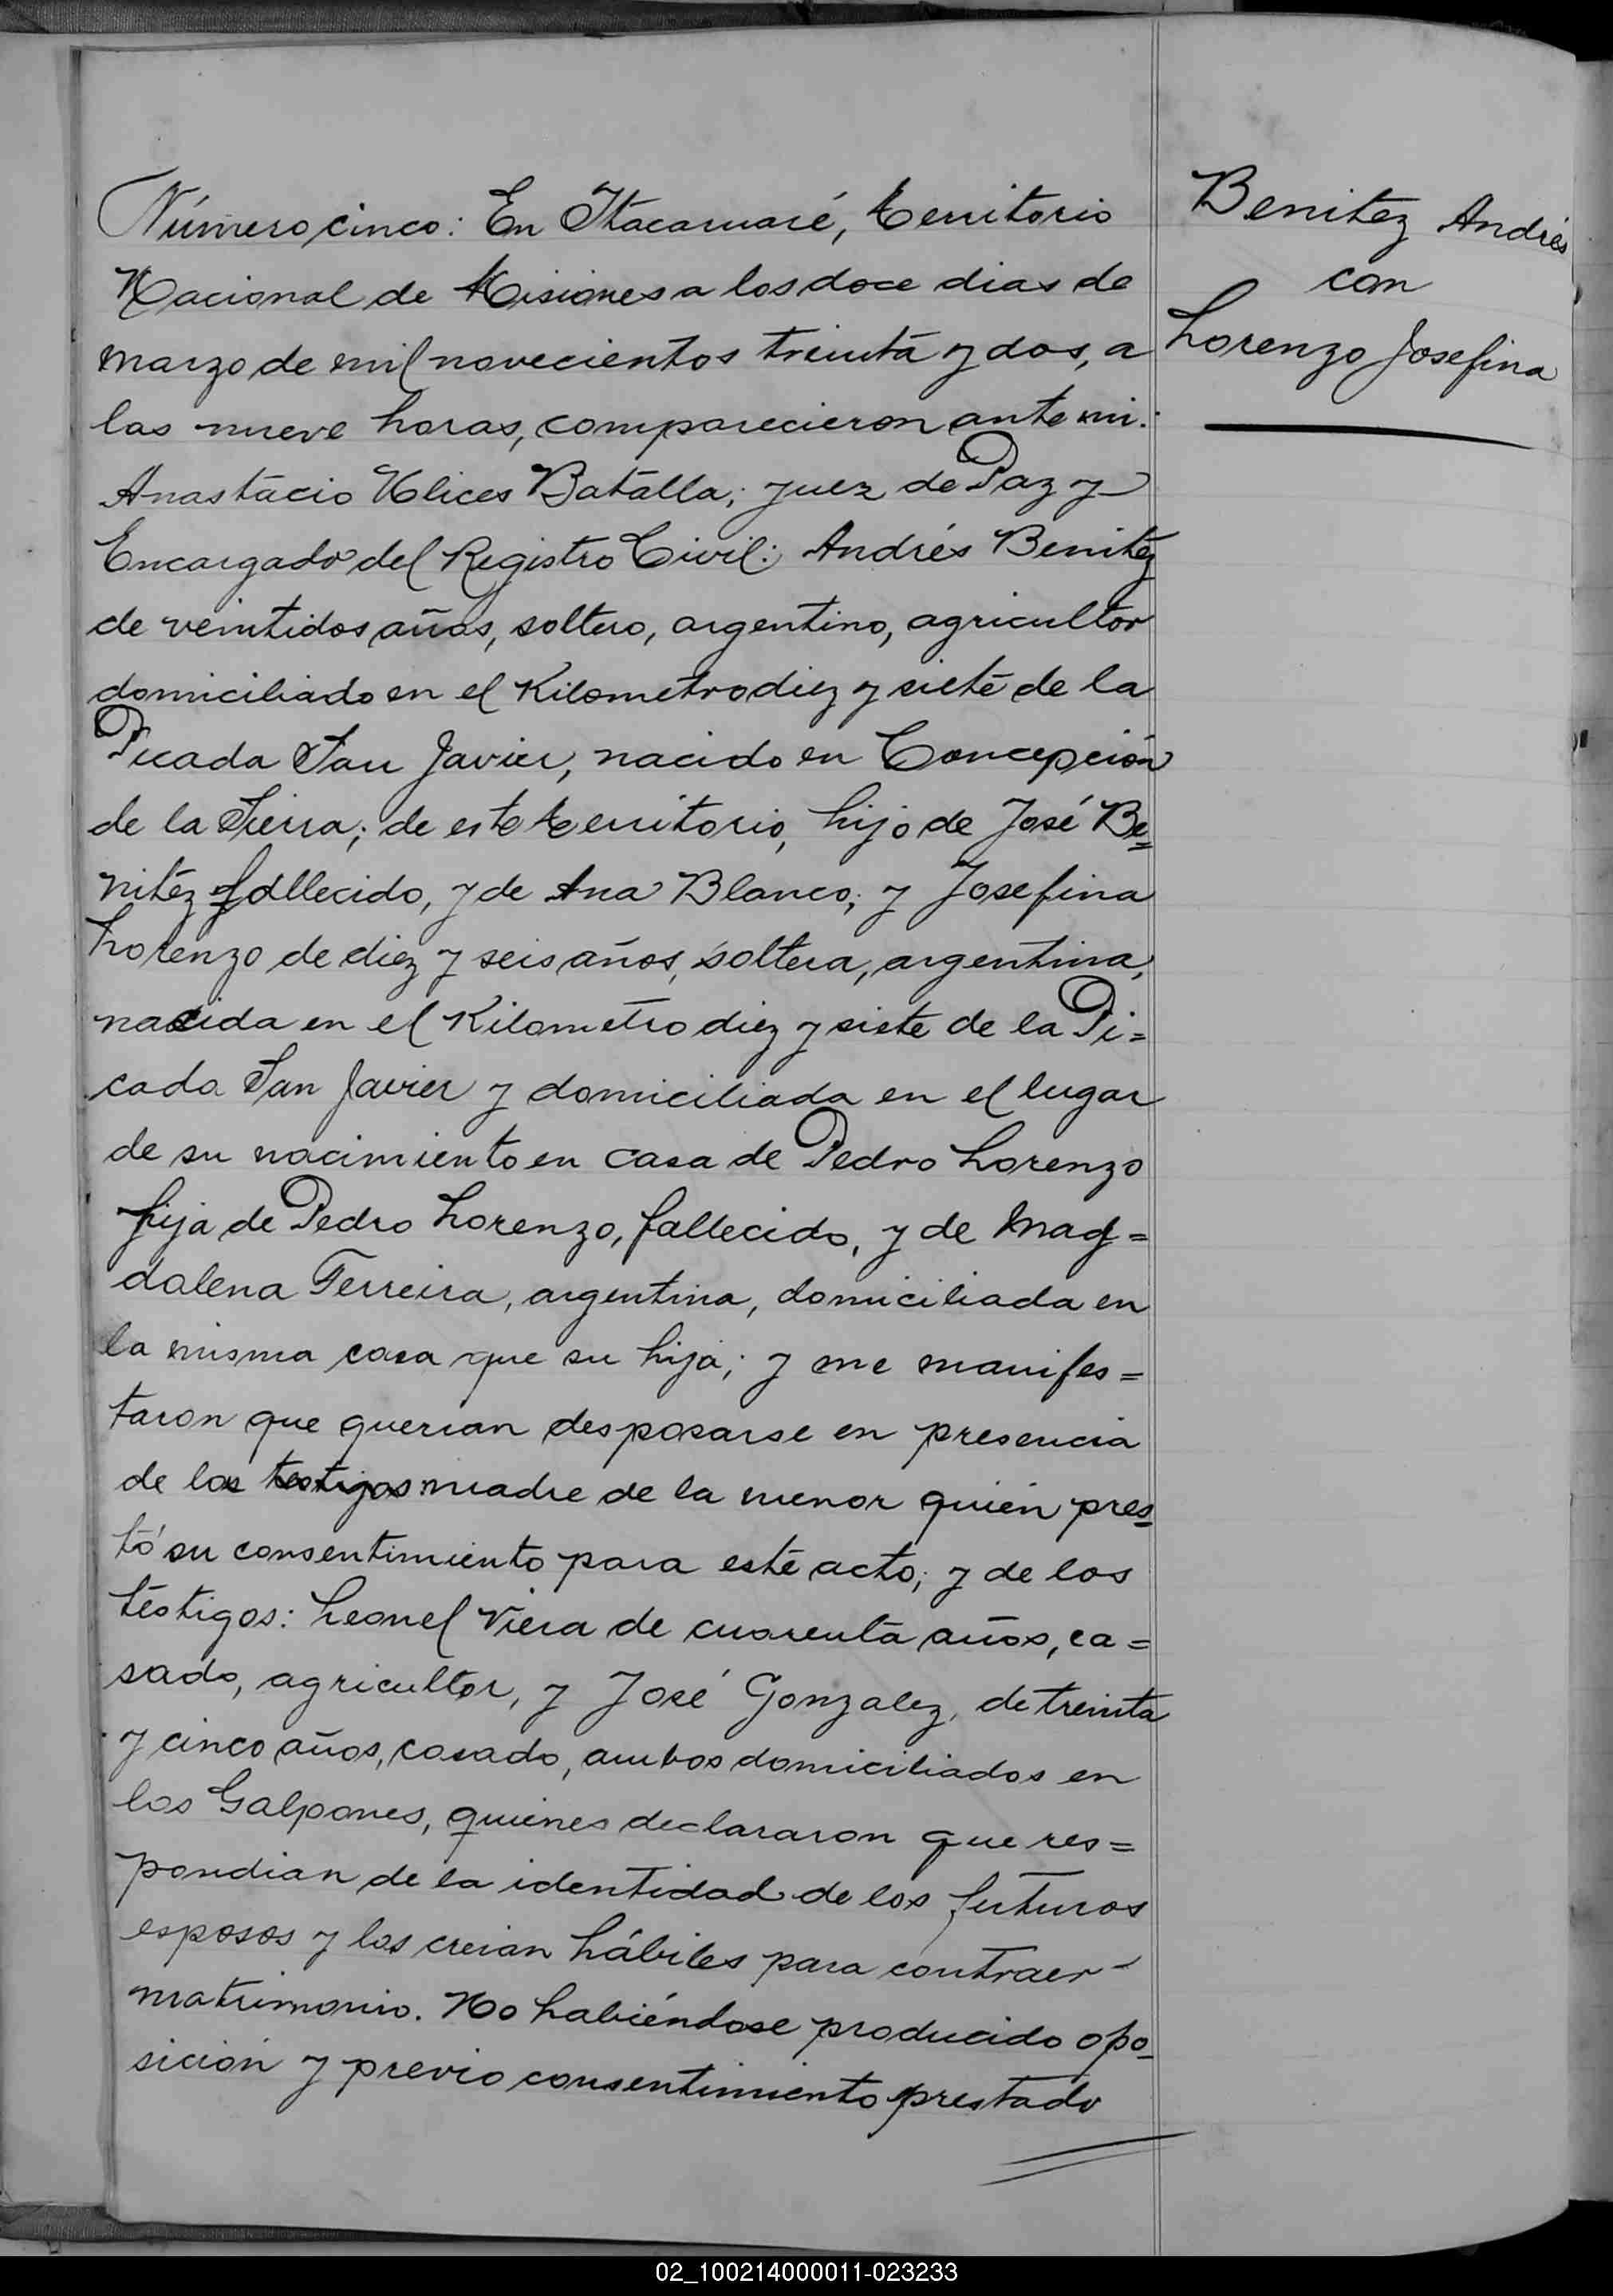 Número cinco: En Itacaruaré, territorio
Nacional de Misiones a los doce dias de
marzo de mil novecientos treinta y dos, a
las nueve horas, comparecieron ante mi:
Anastacio Ulices Batalla; juez de Paz y
Encargado del Registro Civil: Andrés Benitez
de veintidos años, soltero, argentino, agricultor
domiciliado en el Kilometro diez y siete de la
Picada San Javier, nacido en Concepción
de la Sierra; de este territorio, hijo de José Be=
nitez fallecido, y de Ana Blanco; y Josefina
Lorenzo de diez y seis años, soltera, argentina,
nacida en el Kilometro diez y siete de la Pi=
cada San Javier y domiciliada en el lugar
de su nacimiento en casa de Pedro Lorenzo
hija de Pedro Lorenzo, fallecido, y de Mag=
dalena Ferreira, argentina, domiciliada en
la misma casa que su hija; y me manifes=
taron que querian desposarse en presencia
de los testigos madre de la menor quién pres=
tó su consentimiento para este acto; y de los
testigos: Leonel Viera de cuarenta años, ca=
sado, agricultor, y José Gonzalez, de treinta
y cinco años, casado, ambos domiciliados en
los Galpones, quienes declararon que res=
pondian de la identidad de los futuros
esposos y los creian hábiles para contraer
matrimonio. No habiéndose producido opo=
sición y previo consentimiento prestado
Benitez Andrés
con
Lorenzo Josefina
02_100214000011-023233